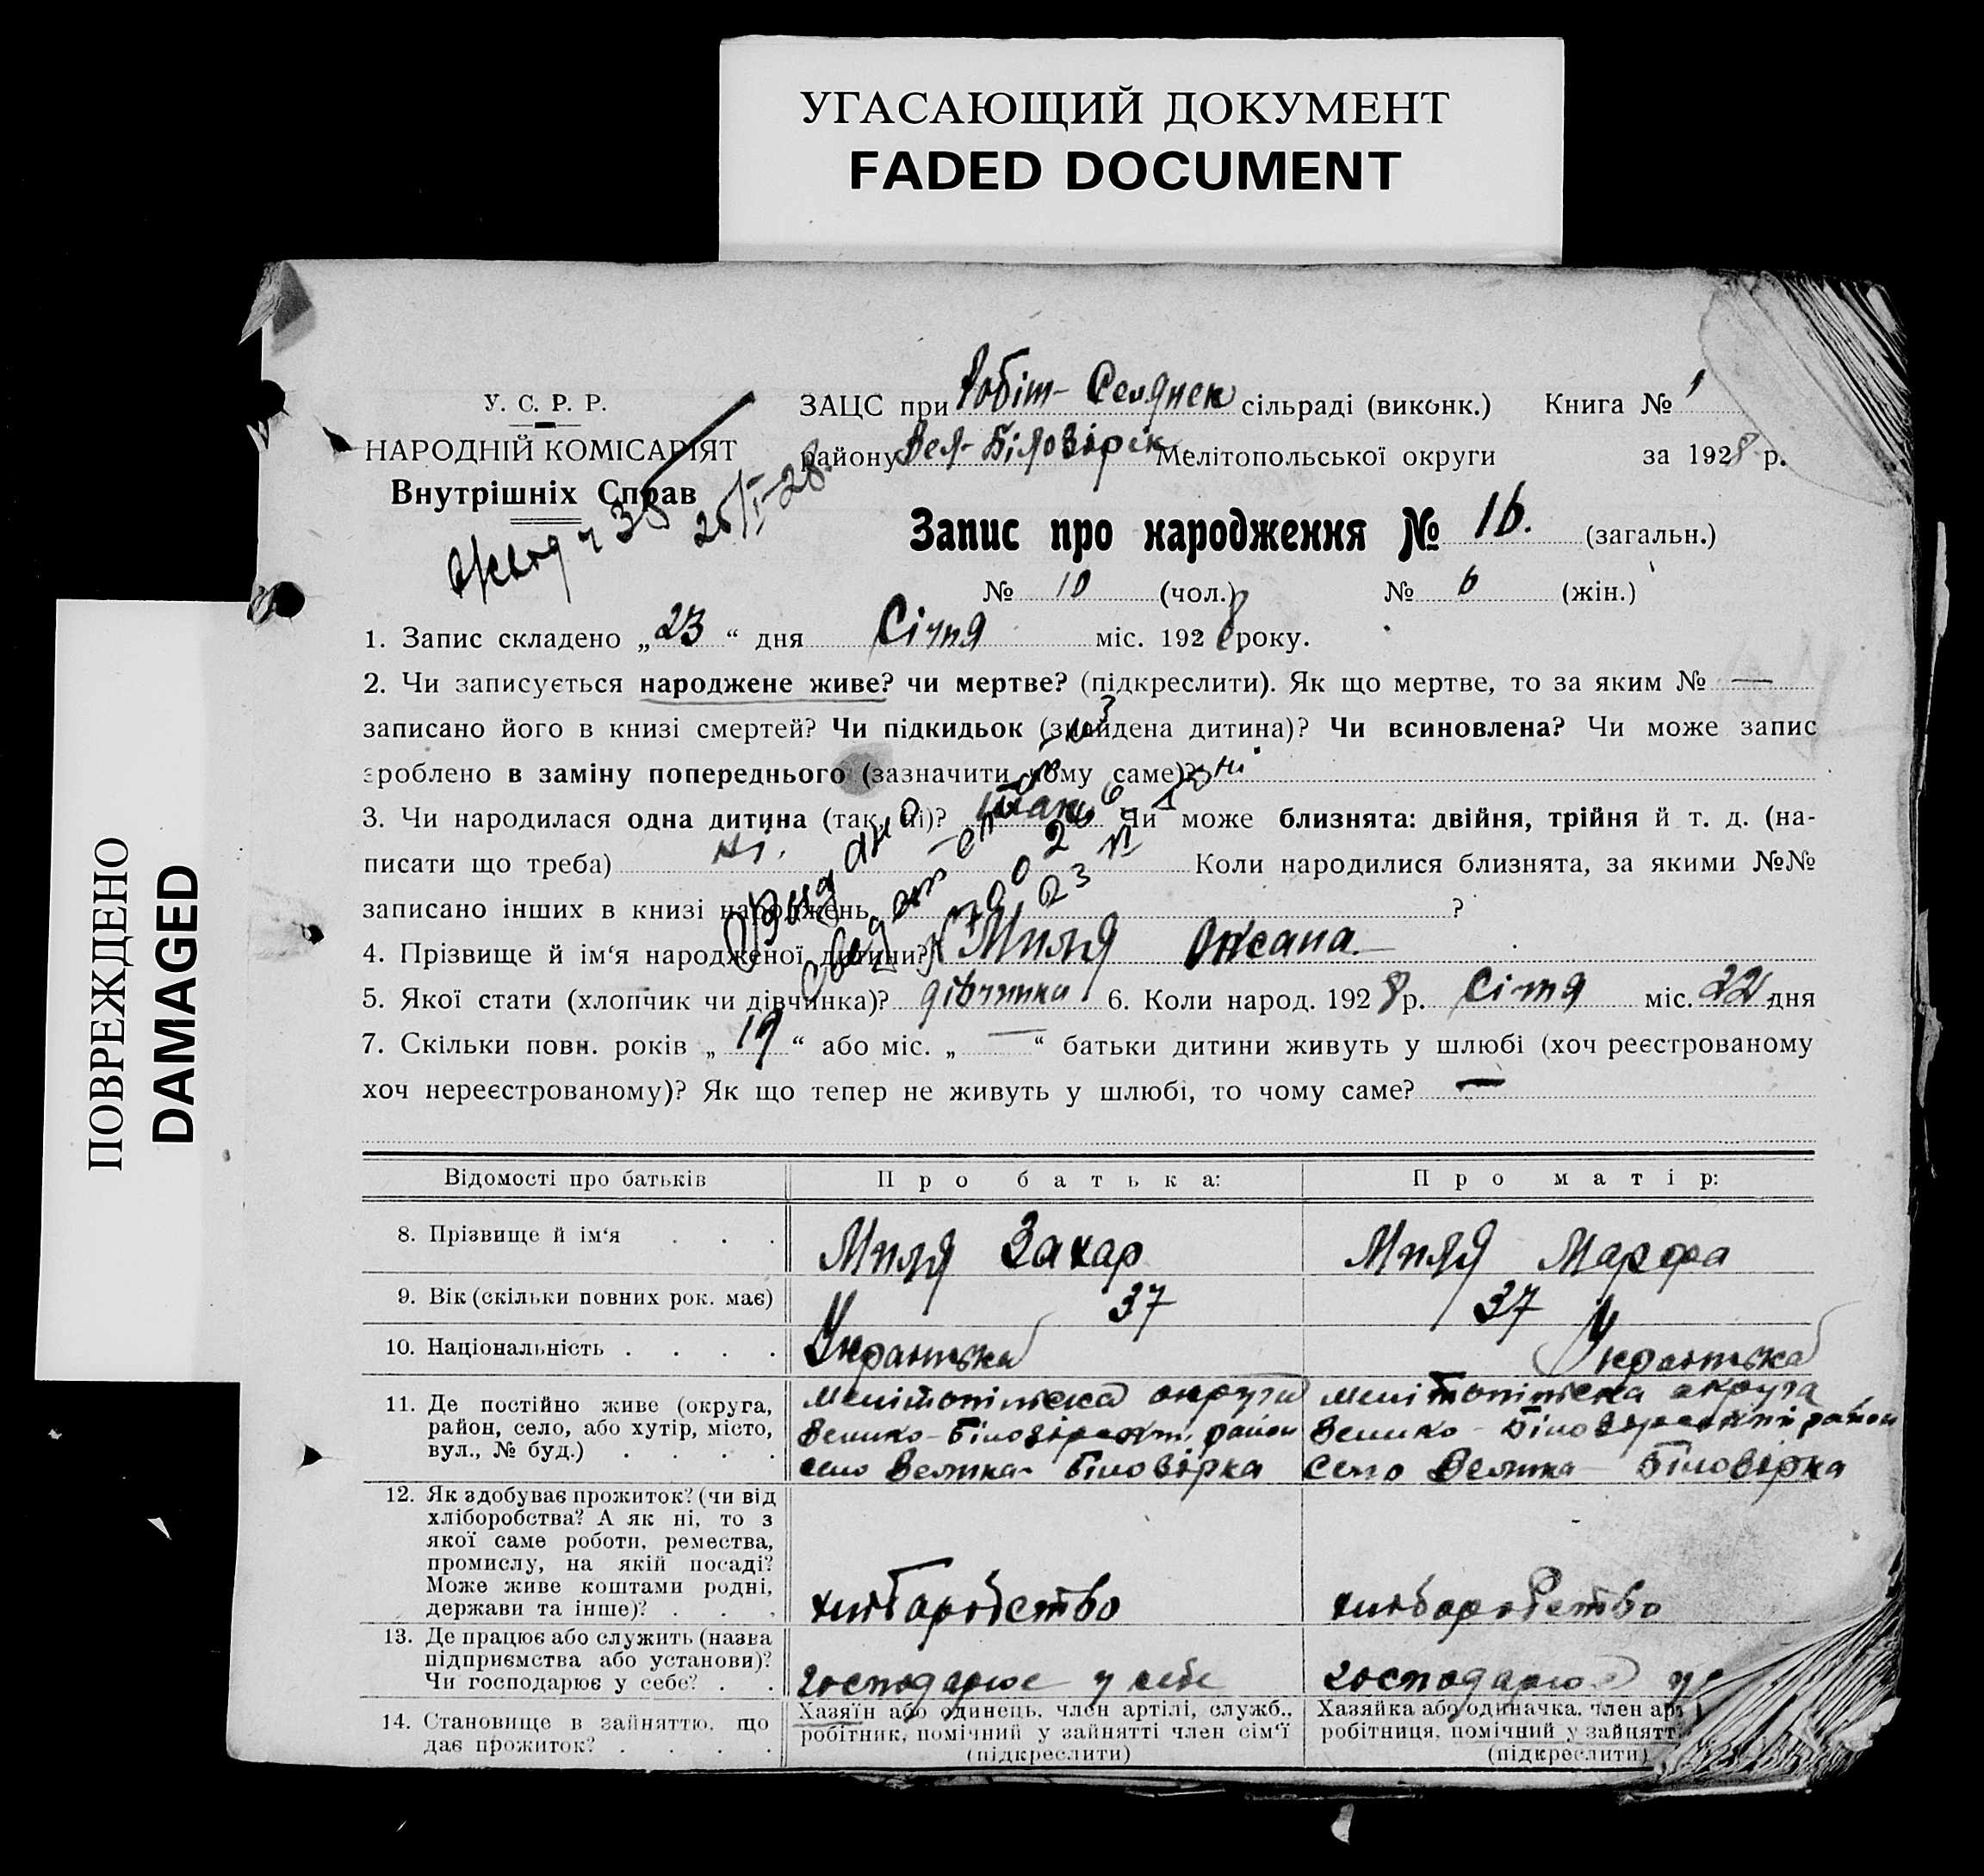 УГАСАЮЩИЙ ДОКУМЕНТ
FADED DOCUMENT
ПОВРЕЖДЕНО
DAMAGED
У. С. Р. Р.
НАРОДНІЙ КОМІСАРІЯТ
Внутрішніх Справ
35
26/I-28.
ЗАЦС при Робіт-Селянск сільраді (виконк.) Книга № 1
району Вел-Білозірск Мелітопольської округи за 1928 р.
Запис про народження № 16. (загальн.)
№ 10 (чол.) № 6 (жін.)
1. Запис складено „23“ дня Січня міс. 1928 року.
2. Чи записується народжене живе? чи мертве? (підкреслити). Як що мертве, то за яким № —
записано його в книзі смертей? Чи підкидьок (знайдена дитина)? Чи всиновлена? Чи може запис
зроблено в заміну попереднього (зазначити чому саме)? ні
3. Чи народилася одна дитина (так, ні)? так Чи може близнята: двійня, трійня й т. д. (на-
писати що треба) ні. Коли народилися близнята, за якими №№
записано інших в книзі народжень ?
4. Прізвище й ім‘я народженої дитини? Миля Оксана
5. Якої стати (хлопчик чи дівчинка)? дівчинка 6. Коли народ. 1928 р. Січня міс. 22 дня
7. Скільки повн. років „19“ або міс. „—“ батьки дитини живуть у шлюбі (хоч реєстрованому
хоч нереєстрованому)? Як що тепер не живуть у шлюбі, то чому саме? —
Відомості про батьків Про батька: Про матір:
8. Прізвище й ім‘я . . . Миля Захар Миля Марфа
9. Вік (скільки повних рок. має) 37 37
10. Національність . . . . Українська Українська
11. Де постійно живе (округа, Мелітопільска округа мелітопільска округа
район, село, або хутір, місто, Велико-Білозірский район Велико-Білозірский район
вул., № буд.) . . . . село Велика-Білозірка село Велика Білозірка
12. Як здобуває прожиток? (чи від
хліборобства? А як ні, то з
якої саме роботи, ремества,
промислу, на якій посаді?
Може живе коштами родні,
держави та інше)? . . . хліборобство хліборобство
13. Де працює або служить (назва
підприємства або установи)?
Чи господарює у себе? . . господарює у себе господарює у
14. Становище в зайняттю, що
дає прожиток? . . . .
Хазяїн або одинець, член артілі, служб.,
робітник, помічний у зайнятті член сім‘ї
(підкреслити)
Хазяйка або одиначка, член арт
робітниця, помічний у зайнятт
(підкреслити)